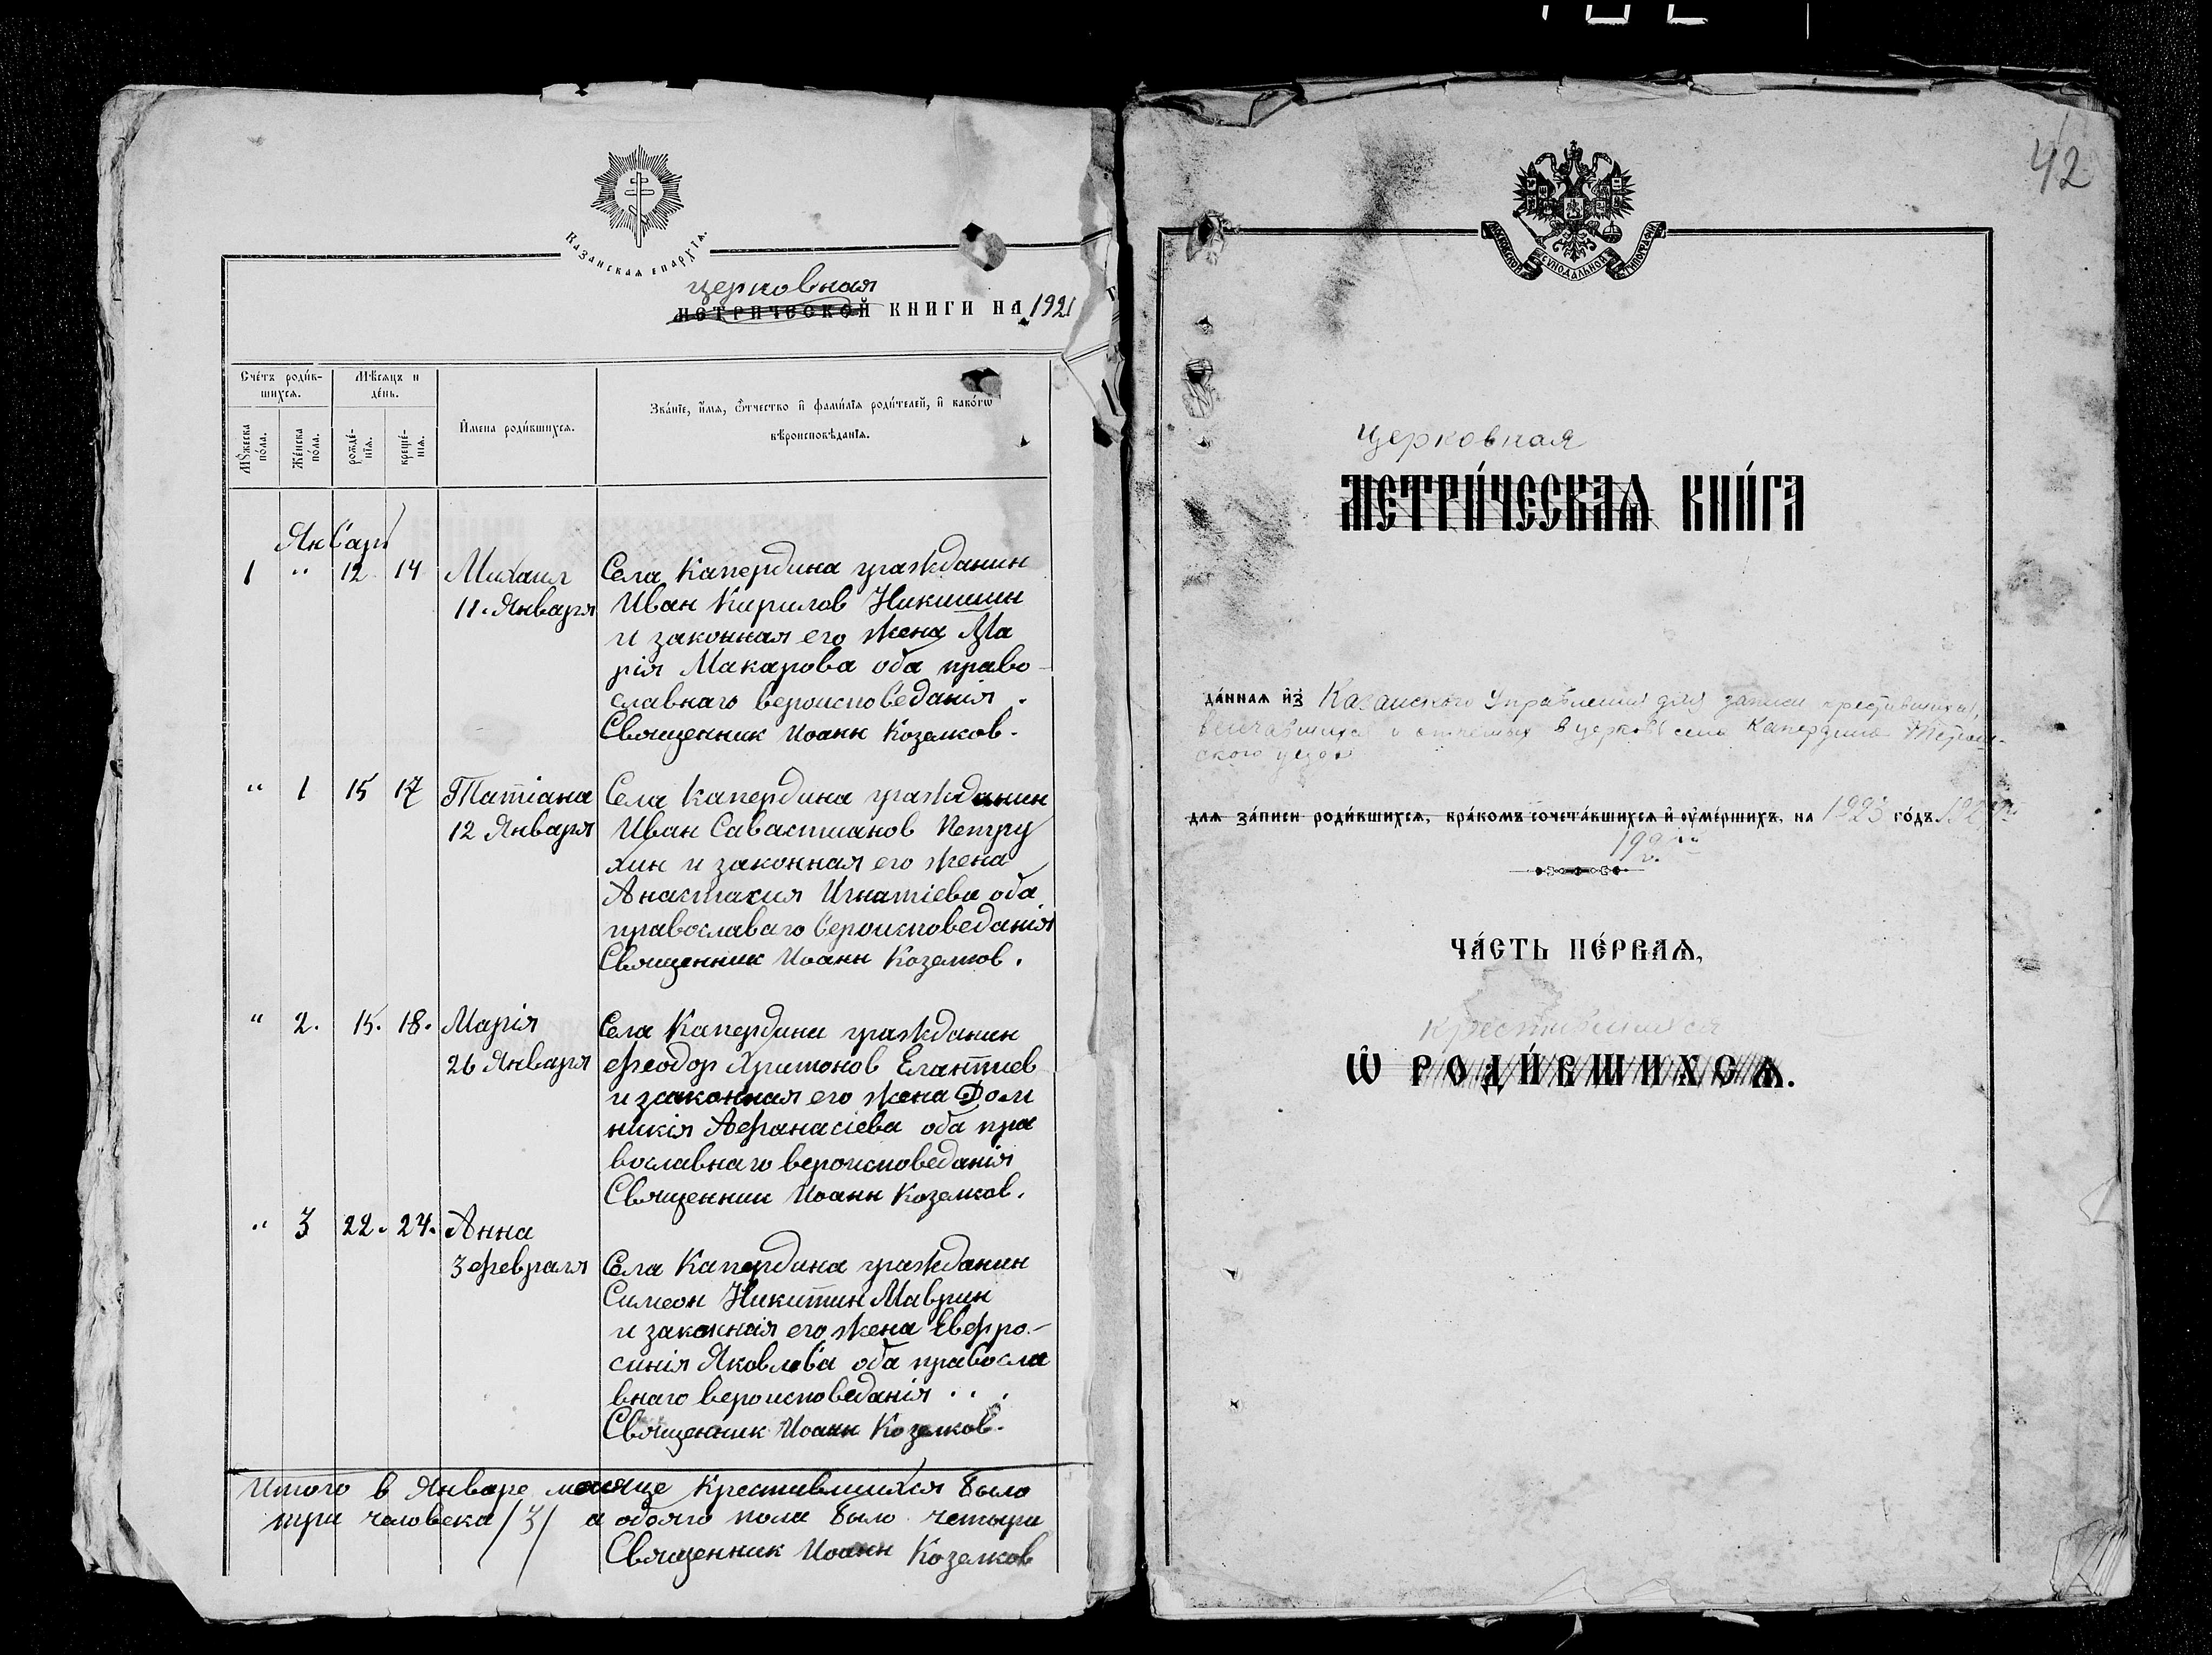 Казанская епархїѧ.
церковная
метрической книги на 1921
Сче́тъ роди́в-
шихсѧ.
Мѣ́сяцъ и
де́нь.
Мꙋ́жеска
по́ла.
Же́нска
по́ла.
рожде́-
нїѧ.
креще́-
нїѧ.
И҆́мена роди́вшихсѧ.
Зва́нїе, и҆́мѧ, ѻ҆́тчество и҆ фами́лїѧ роди́телей, и҆ како́гѡ
вѣроисповѣ́данїѧ.
Январь
1 " 12 14 Михаил
11. Января
Села Капердина гражданин
Иван Кирилов Никишин
и законная его жена Ма
рія Макарова оба право-
славнаго вероисповеданія.
Священник Иоанн Козелков.
" 1 15 17 Татіана
12 Января
Села Капердина гражданин
Иван Савастианов Петру
хин и законная его жена
Анастасия Игнатіева оба
православаго вероисповеданія
Священник Иоанн Козелков.
" 2. 15. 18. Марія
26 Января
Села Капердина гражданин
Феодор Харитонов Елантиев
и законная его жена Дом
никія Афанасіева оба пра
вославнаго вероисповеданія
Священник Иоанн Козелков.
" 3 22. 24. Анна
3 февраля
Села Капердина гражданин
Симеон Никитин Маврин
и законная его жена Евфро-
синія Яковлева оба правосла
внаго вероисповеданія . . .
Священник Иоанн Козелков.
Итого в Январе месяце крестившихся было
три человека /3/ а обоего пола было четыри
Священник Иоанн Козелков
42
московской сѵнодальной типографїи
Церковная
МЕТРИ́ЧЕСКАѦ КНИ́ГА
да́ннаѧ и҆з̾ Казанского Управления для записи крестившихся,
венчавшихся и отпетых в церкви села Капердино
ского уезда
длѧ за́писи роди́вшихсѧ, бра́комъ сочета́вшихсѧ и҆ ᲂу҆ме́ршихъ, на 1923 го́дъ.
ЧА́СТЬ ПЕ́РВАѦ,
крестившихся
Ѡ҆ РОДИ́ВШИХСѦ.